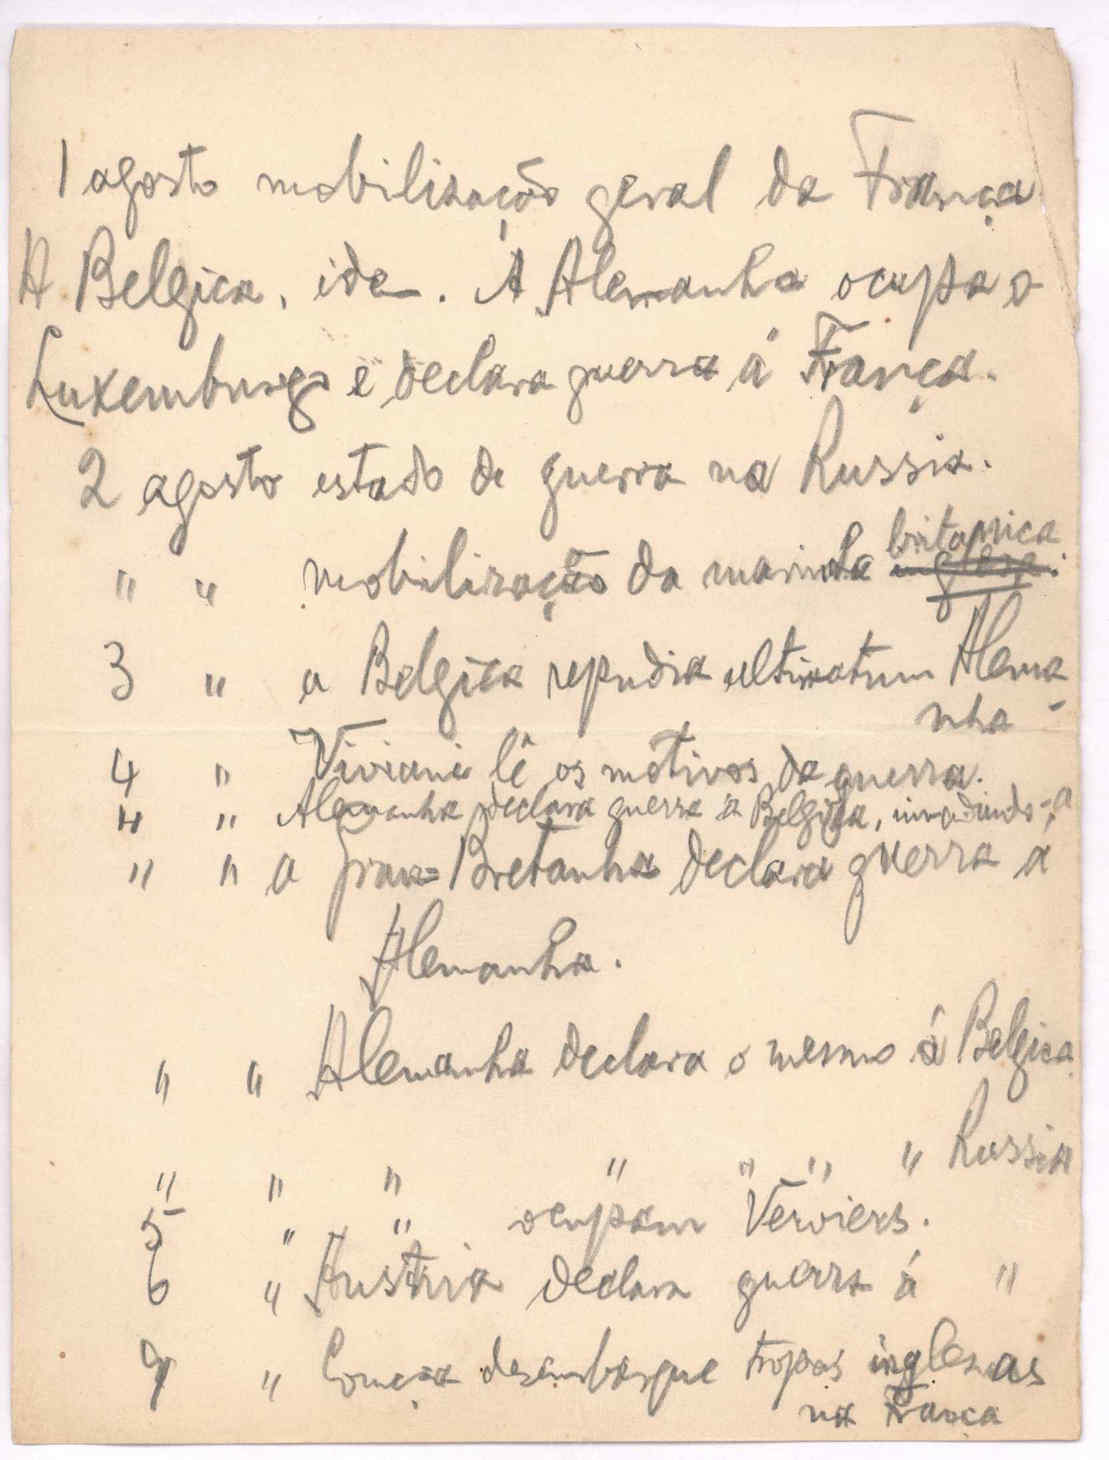 1 agosto mobilização geral da França
A Belgica, idem. A Alemanha ocupa o
Luxemburgo e declara guerra á França.
2 agosto estado de guerra na Russia.
" " mobilização da marinha britanica inglesa.
3 " a Belgica repudia ultimatum Alema-
nha
4 " Viviani lê os motivos da guerra.
4 " Alemanha declara guerra a Belgica, invadindo-a
" " a Gran=Bretanha declara guerra á
Alemanha.
" " Alemanha declara o mesmo á Belgica
" " " " " " " Russia
5 " " ocupam Verviers.
6 " Austria declara guerra á "
9 " Começa desembarque tropas inglezas
na França